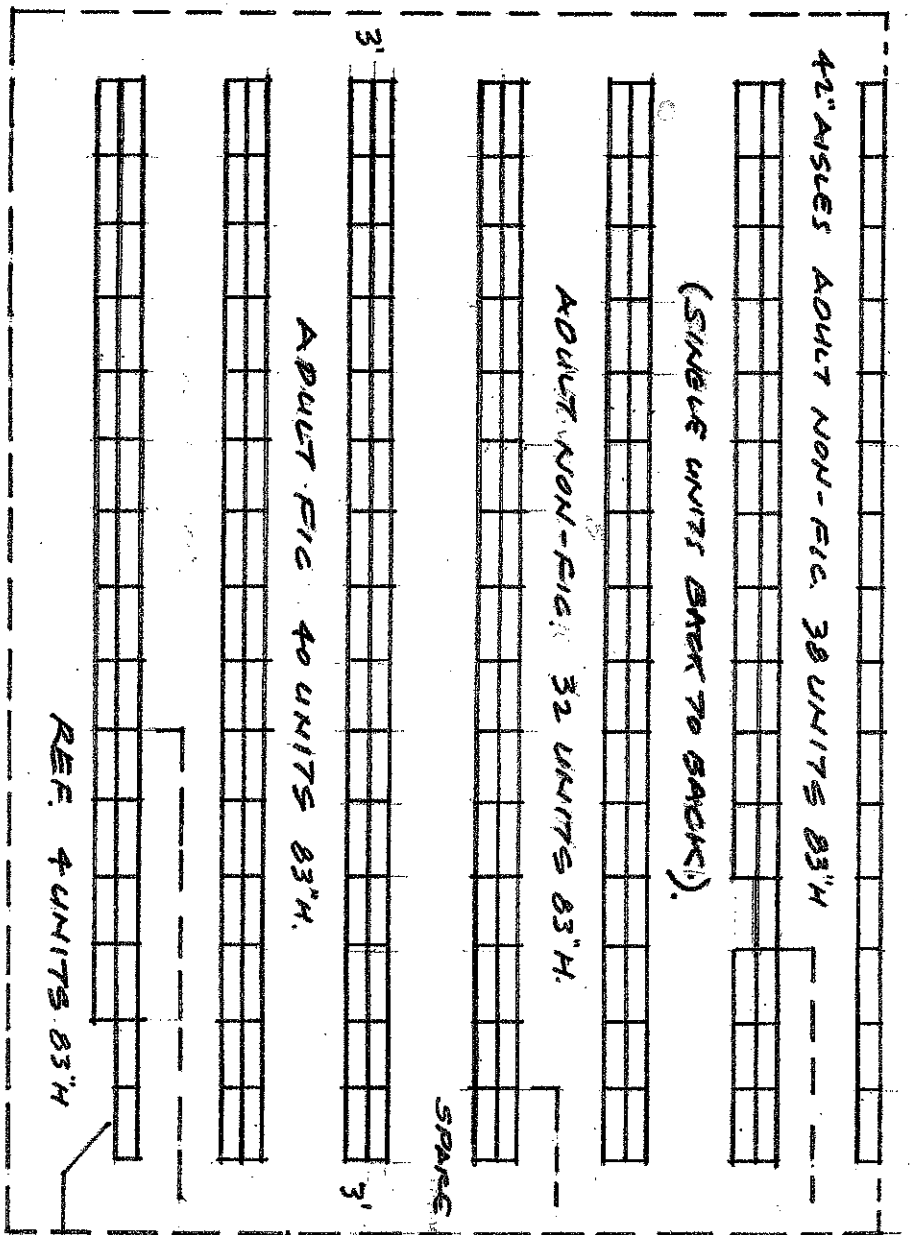 42" AISLES ADULT NON-FIC. 38 UNITS 83"H
(SINGLE UNITS BACK TO BACK).
ADULT NON-FIC. 32 UNITS 83"H.
SPARE
3'
3'
ADULT FIC 40 UNITS 83"H.
REF. 4 UNITS 83"H